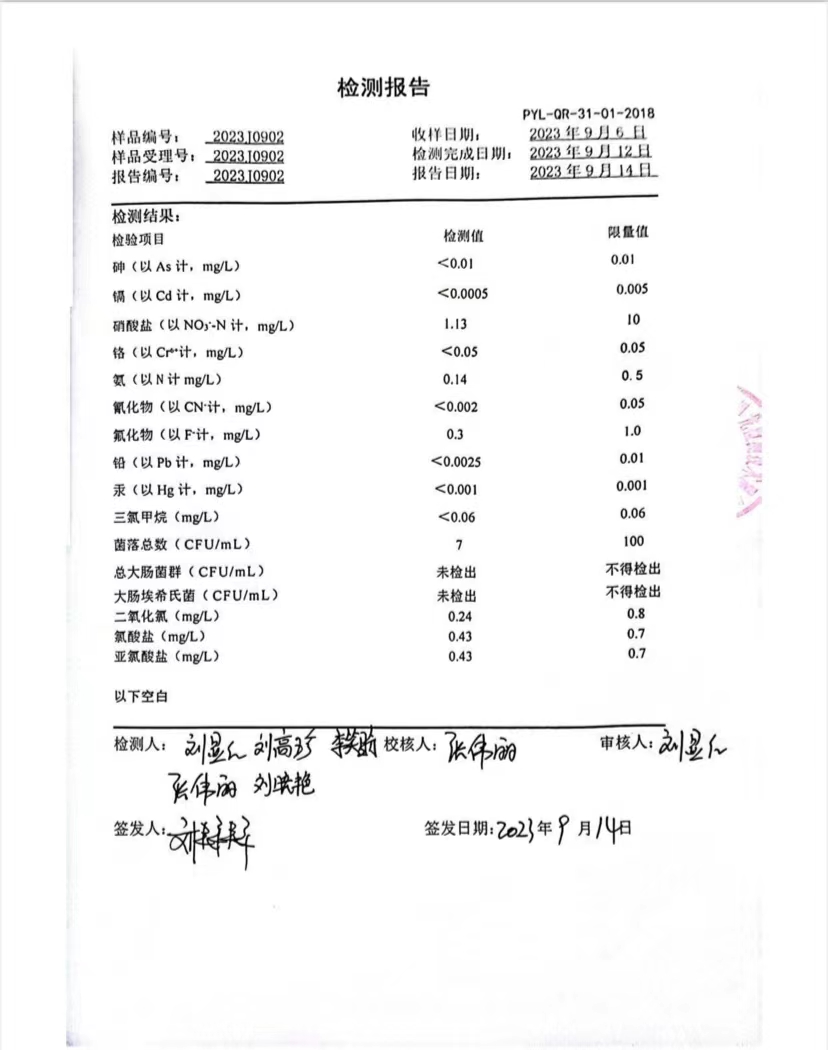 检测报告
PYL-QR-31-01-2018
样品编号： 2023J0902 收样日期： 2023 年 9 月 6 日
样品受理号： 2023J0902 检测完成日期： 2023 年 9 月 12 日
报告编号： 2023J0902 报告日期： 2023 年 9 月 14 日
检测结果：
检验项目 检测值 限量值
砷（以 As 计，mg/L） ＜0.01 0.01
镉（以 Cd 计，mg/L） ＜0.0005 0.005
硝酸盐（以 NO₃⁻-N 计，mg/L） 1.13 10
铬（以 Cr⁶⁺计，mg/L） ＜0.05 0.05
氨（以 N 计 mg/L） 0.14 0.5
氰化物（以 CN⁻计，mg/L） ＜0.002 0.05
氟化物（以 F⁻计，mg/L） 0.3 1.0
铅（以 Pb 计，mg/L） ＜0.0025 0.01
汞（以 Hg 计，mg/L） ＜0.001 0.001
三氯甲烷（mg/L） ＜0.06 0.06
菌落总数（CFU/mL） 7 100
总大肠菌群（CFU/mL） 未检出 不得检出
大肠埃希氏菌（CFU/mL） 未检出 不得检出
二氧化氯（mg/L） 0.24 0.8
氯酸盐（mg/L） 0.43 0.7
亚氯酸盐（mg/L） 0.43 0.7
以下空白
检测人： 刘显仁 刘高珍 校核人： 张伟丽 审核人： 刘显仁
张伟丽 刘洪艳
签发人： 签发日期：2023年 9 月 14日